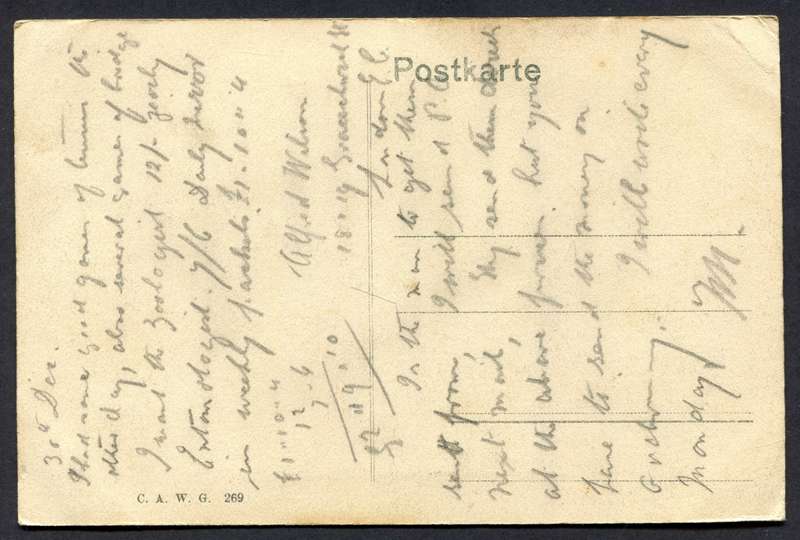 Postkarte
30th Dec.
I had some good games of tennis the
other day, also several games of bridge
I want the Zoologist 12/- yearly
Entomologist 7/6 Daily Mirror
in weekly packets £1-10-4
£1"10"4
12
7-6
£2"9"10
Alfred Wilson
18 & 19 Gracechurch St
London E.C.
is the man to get them
sent from, I will send P.C.
next mail, They send them direct
at the above prices, but you
have to send the money on
ordering. I will write every
Monday.
C. A. W. G. 269